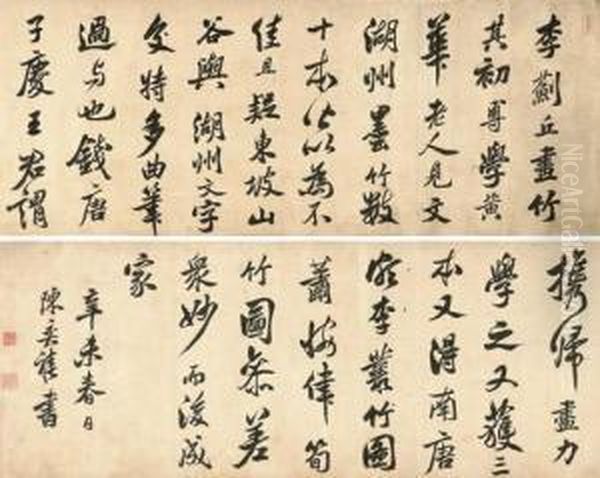 李薊丘畫竹
其初專學黃
華老人見文
湖州墨竹数
十本皆以為不
佳且疑東坡山
谷與湖州文字
交特多曲筆
過与也錢唐
子慶王君謂
攜歸盡力
學之又獲三
本又得南唐
李叢竹圖
蕭悅偉筍
竹圖參差
衆妙而後成
家
辛未春日
陳奕禧書
NiceArtGallery